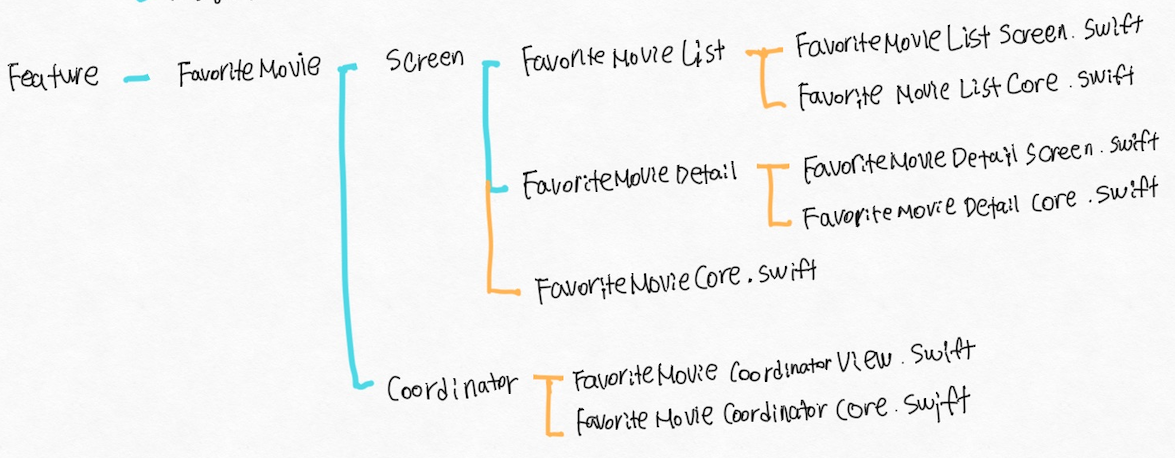 Feature - FavoriteMovie Screen FavoriteMovieList FavoriteMovieListScreen.swift
FavoriteMovieListCore.swift
FavoriteMovieDetail FavoriteMovieDetailScreen.swift
FavoriteMovieDetailCore.swift
FavoriteMovieCore.swift
Coordinator FavoriteMovieCoordinatorView.swift
FavoriteMovieCoordinatorCore.swift